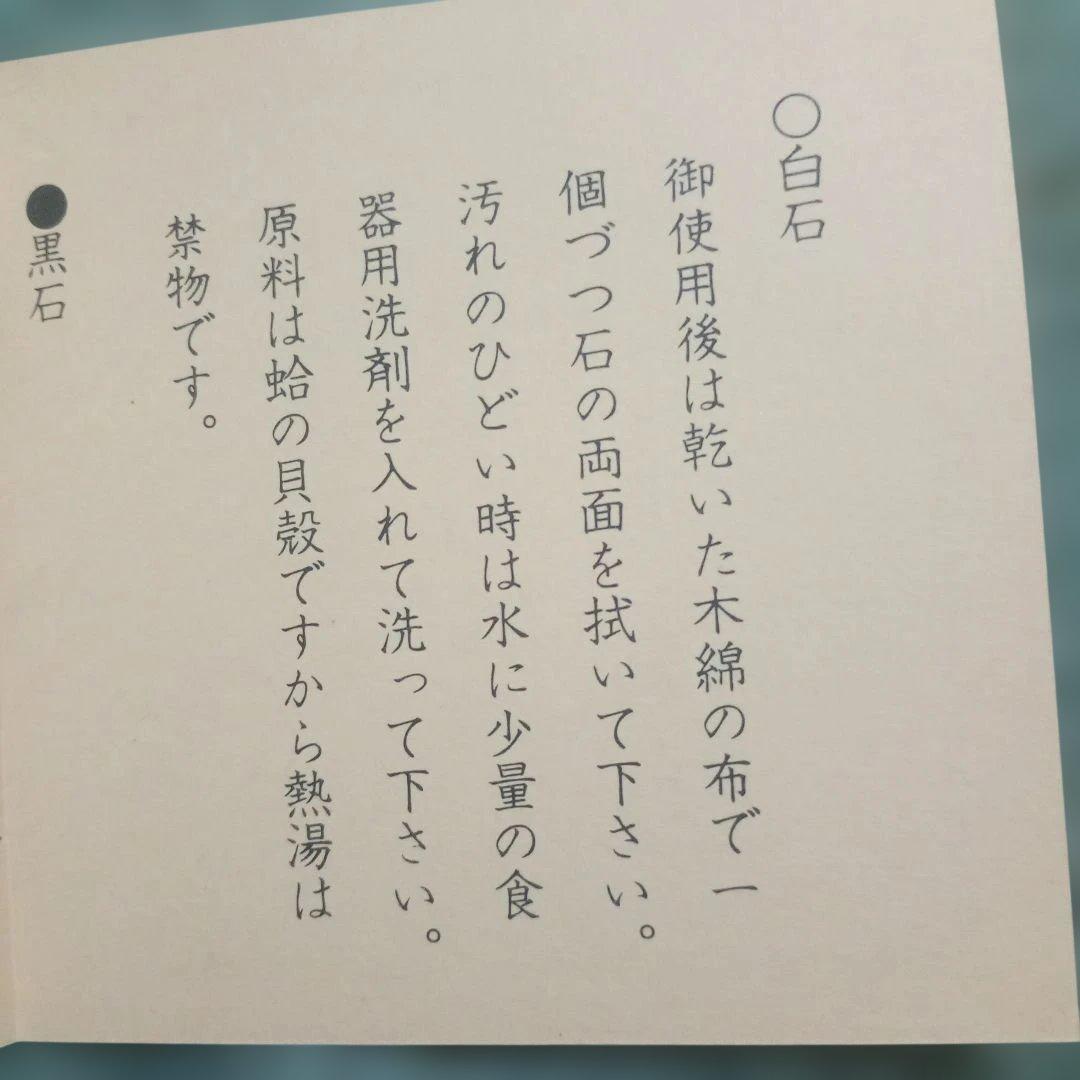 ○白石
御使用後は乾いた木綿の布で一
個づつ石の両面を拭いて下さい。
汚れのひどい時は水に少量の食
器用洗剤を入れて洗って下さい。
原料は蛤の貝殻ですから熱湯は
禁物です。
●黒石